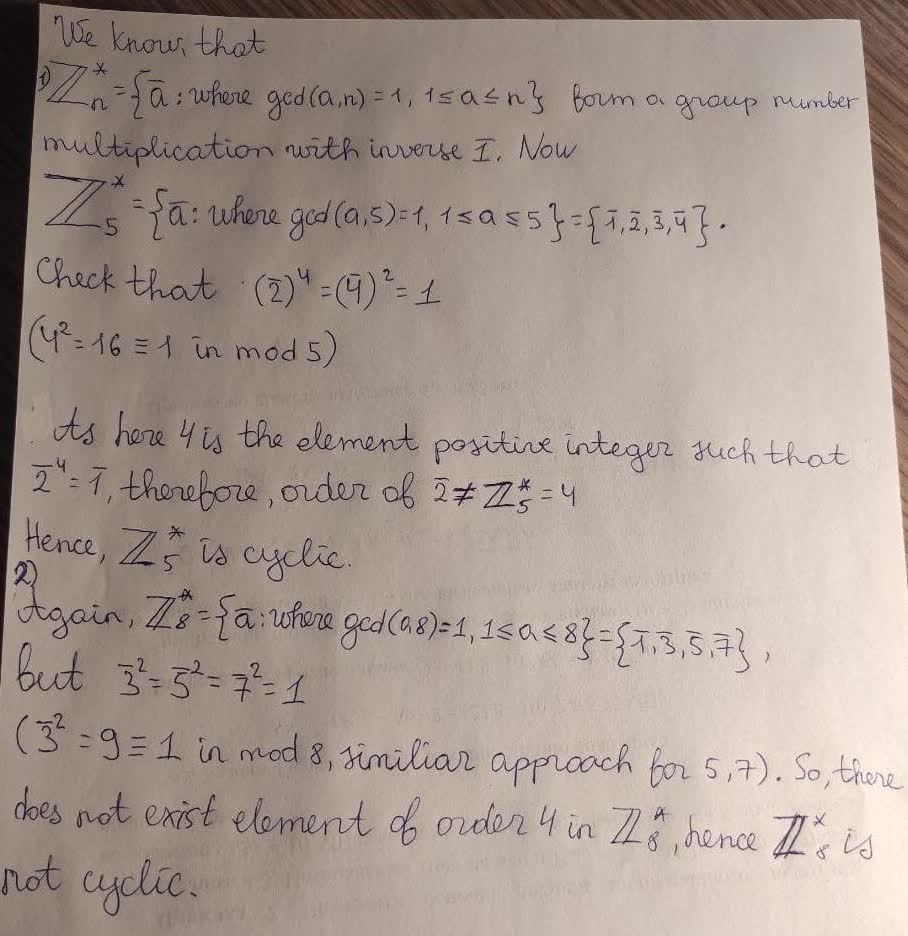 We know, that
1) ℤₙ* = {ā : where gcd(a,n) = 1, 1 ≤ a ≤ n} form a group number
multiplication with inverse I. Now
ℤ₅* = {ā : where gcd(a,5)=1, 1 ≤ a ≤ 5} = {1̄, 2̄, 3̄, 4̄}.
Check that (2̄)⁴ = (4̄)² = 1
(4² = 16 ≡ 1 in mod 5)
As here 4 is the element positive integer such that
2̄⁴ = 1̄, therefore, order of 2̄ ≠ ℤ₅* = 4
Hence, ℤ₅* is cyclic.
2)
Again, ℤ₈* = {ā : where gcd(a,8)=1, 1 ≤ a ≤ 8} = {1̄, 3̄, 5̄, 7̄},
but 3̄² = 5̄² = 7̄² = 1
(3̄² = 9 ≡ 1 in mod 8, similiar approach for 5,7). So, there
does not exist element of order 4 in ℤ₈*, hence ℤ₈* is
not cyclic.